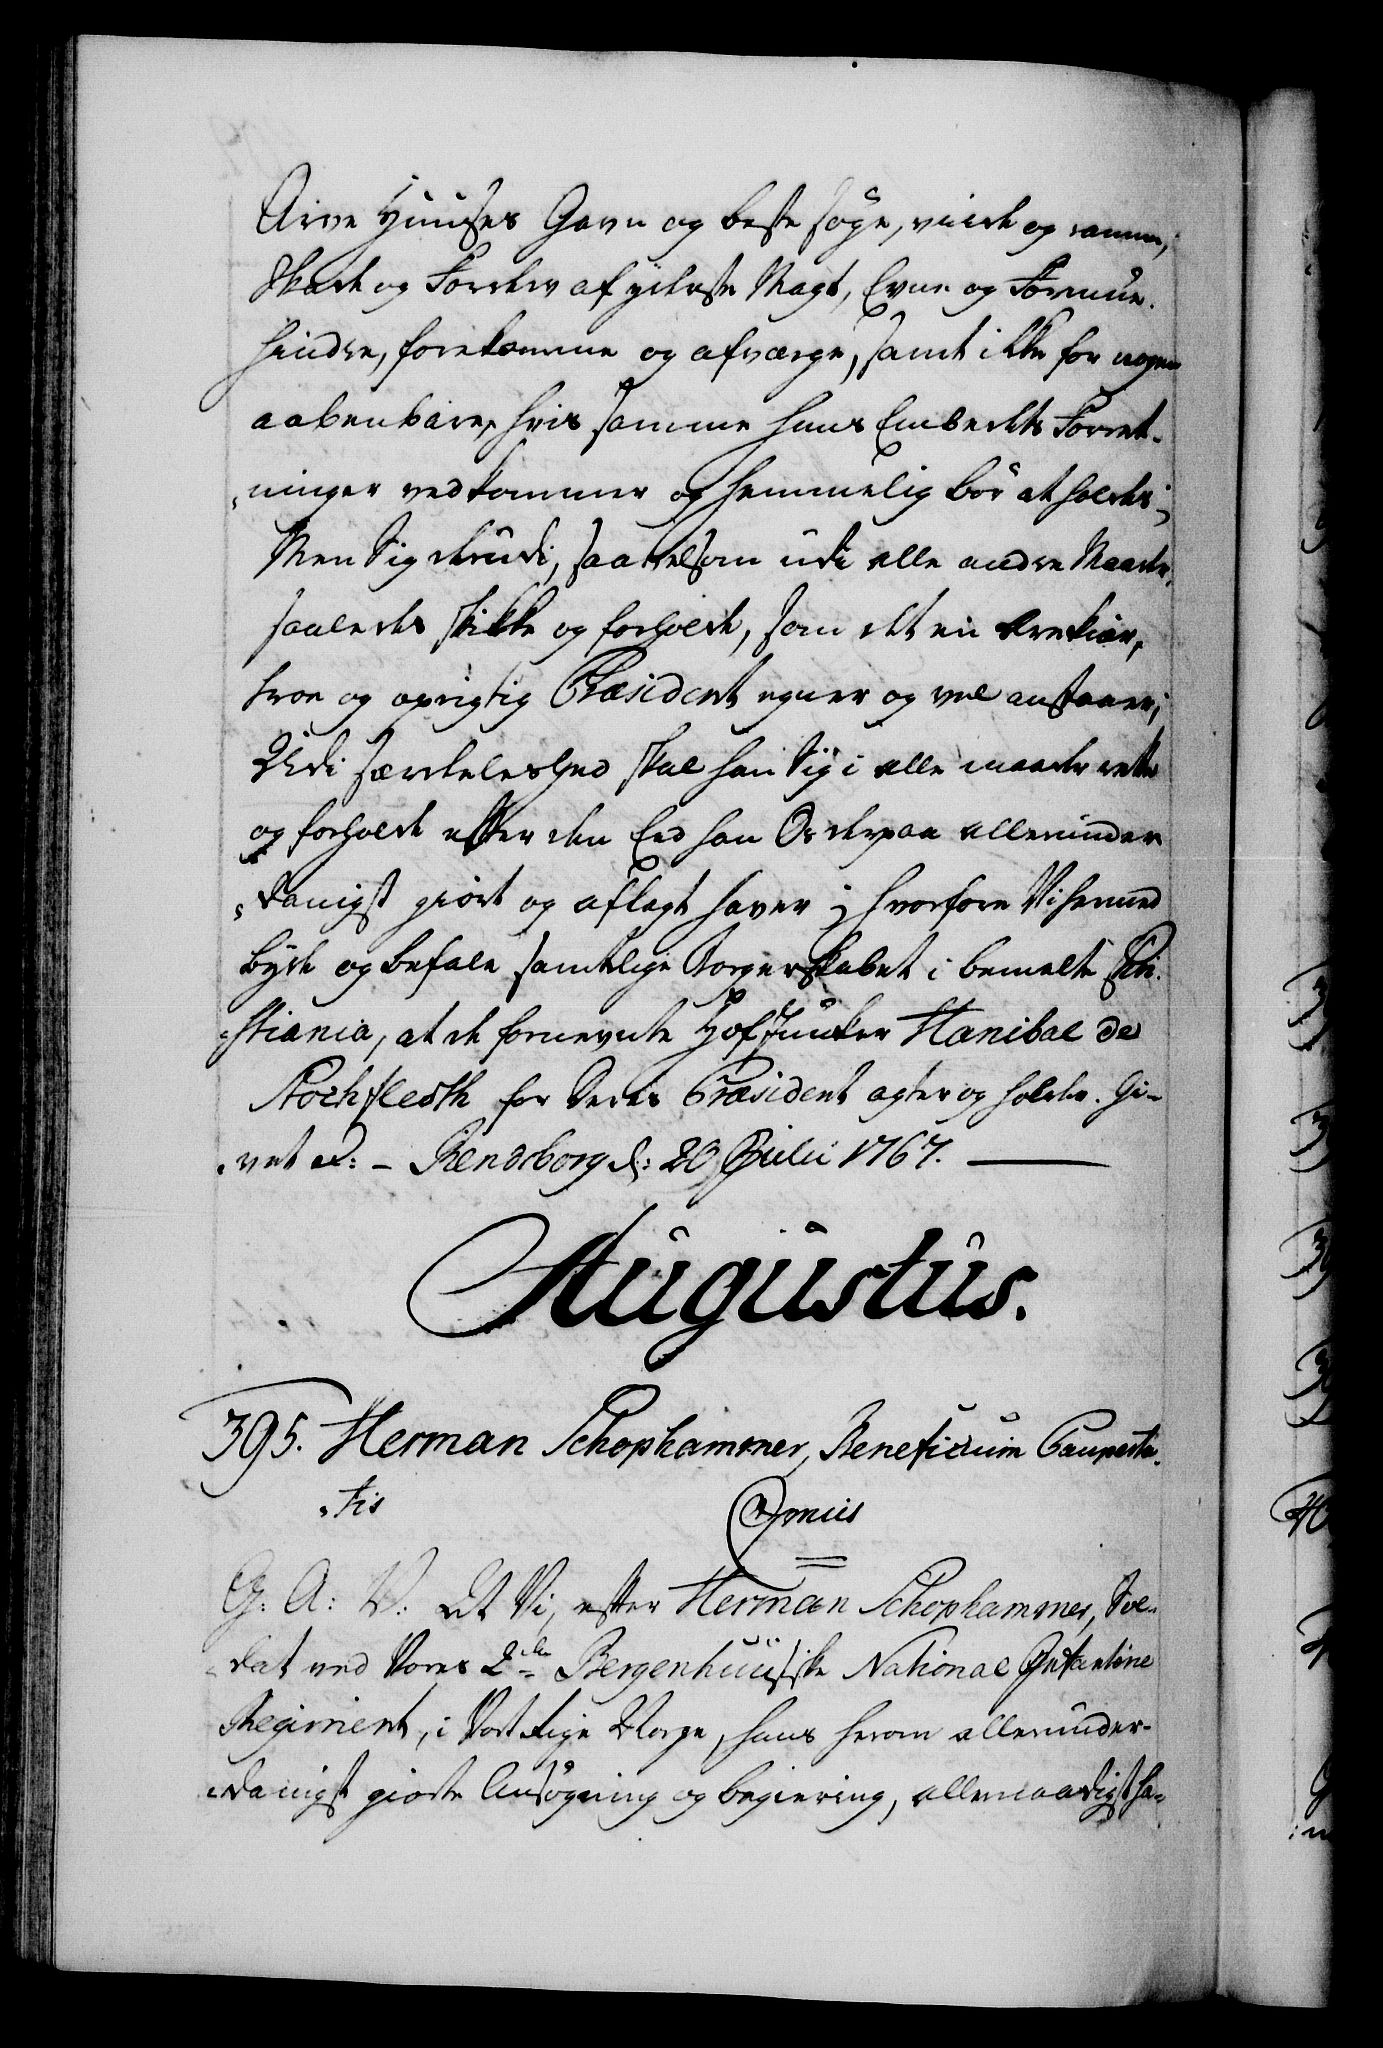 Arve Huuses Gavn og beste søge, viide og ramme,
Skade og Forderv af yderste Magt, Evne og Formue
hindre, forekomme og afværge, samt ikke for nogen
aabenbare, hvis samme hans Embedets Forret-
ninger vedkommer og hemmelig bør at holdes;
Men Sig derudi, saavelsom udi alle andre Maader,
saaledes skikke og forholde, som det en ærekiær,
troe og oprigtig Præsident egner og vel anstaaer;
Udi særdeleshed skal han Sig i alle maader rette
og forholde efter den Eed han Os derpaa allerunder
danigst giørt og aflagt haver; hvorfore Vi hermed
byde og befale samtlige Borgerskabet i bemelte Chri-
stiania, at de fornevnte HofJunker Hanibal de
Stochfledth for Deres Præsident agter og holder. Gi-
vet etc: - Rendsborg d: 20 Julii 1767.
Augustus.
395. Herman Schophammer, Beneficium Pauperta-
tis
Omiis
G: A: V: At Vi, efter Herman Schophammer, Sol-
dat ved Vores 2det Bergenhuusiske National Infanterie
Regiment, i Vort Rige Norge, hans herom allerunder-
danigst giorte Ansøgning og begiering, allernaadigst ha-